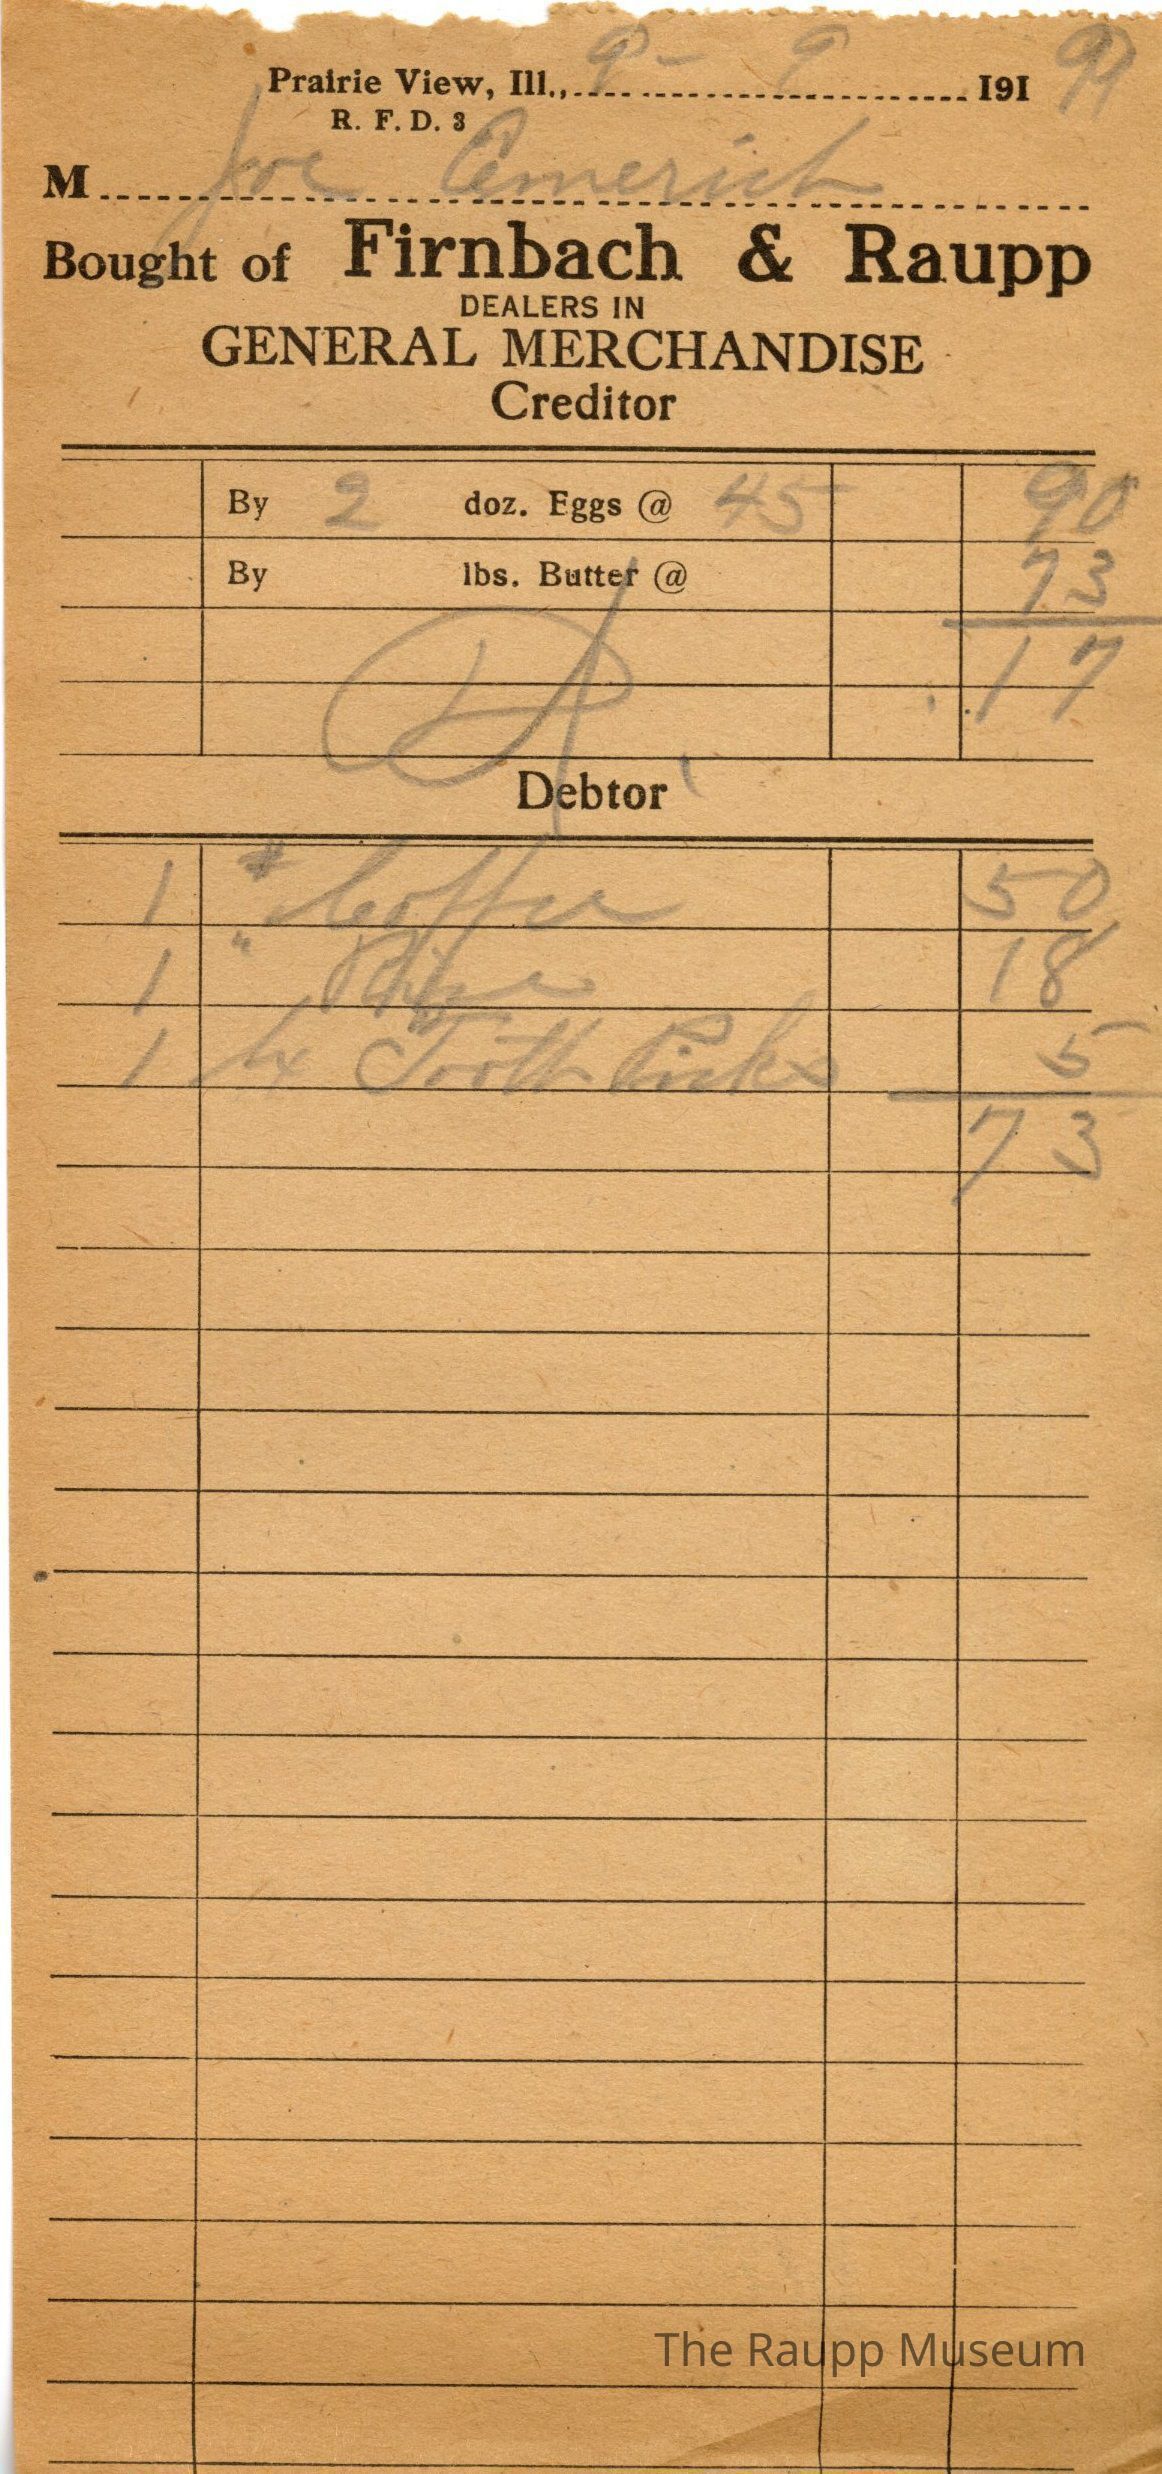 Prairie View, Ill., 9 - 9 191 9
R. F. D. 3
M Joe Emerich
Bought of Firnbach & Raupp
DEALERS IN
GENERAL MERCHANDISE
Creditor
By 2 doz. Eggs @ 45 90
By lbs. Butter @ 73
17
Debtor
1 # Coffee 50
1 " Rice 18
1 Bx Tooth Picks 5
73
The Raupp Museum